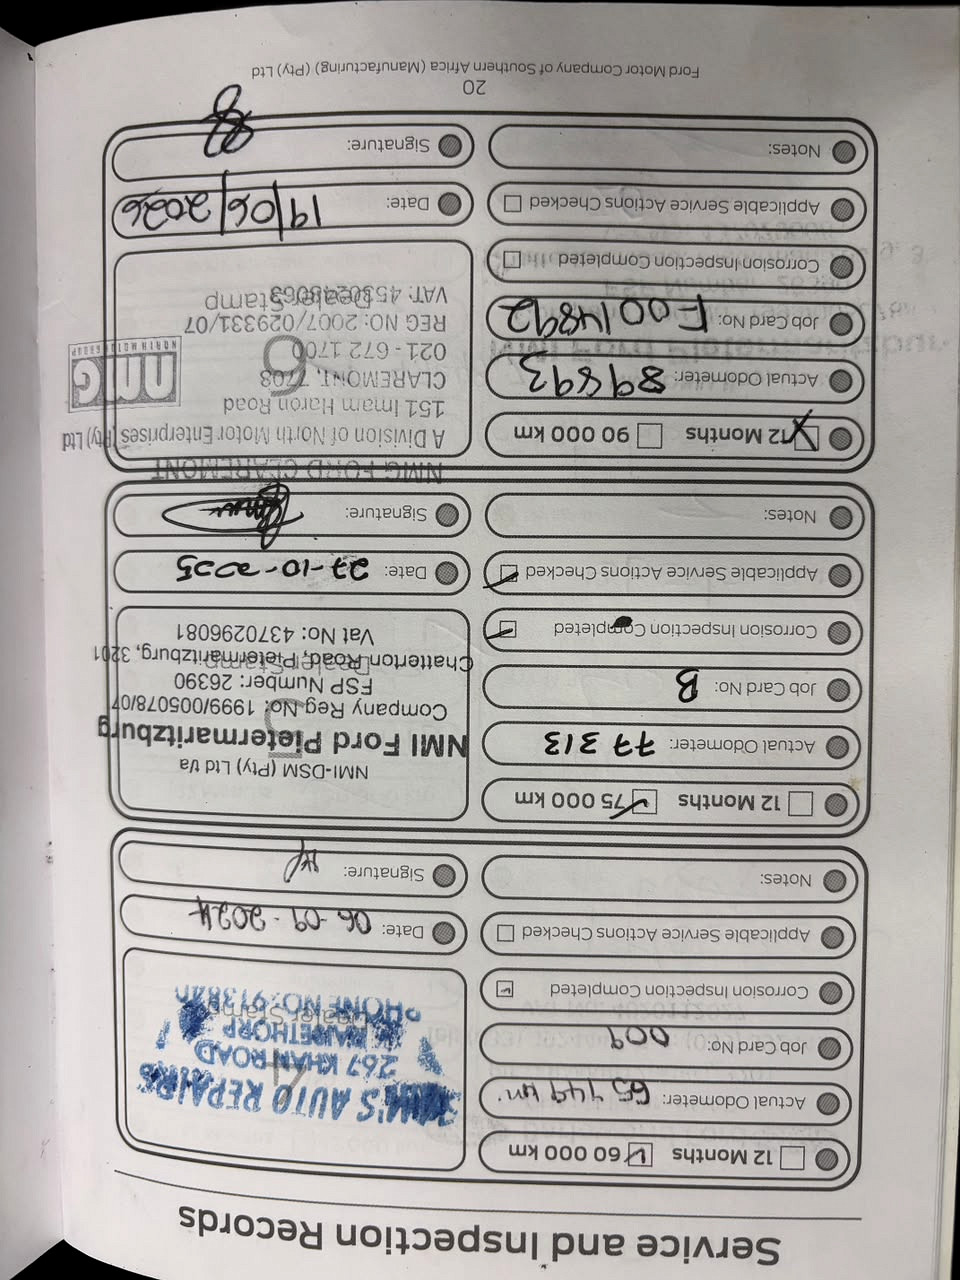 Service and Inspection Records
12 Months 60 000 km
Actual Odometer: 65 449 km
Job Card No: 009
Corrosion Inspection Completed
Applicable Service Actions Checked
Notes:
AUTO REPAIRS
267 KHAN ROAD
Dealer Stamp
Date: 06-09-2024
Signature:
12 Months 75 000 km
Actual Odometer: 77 313
Job Card No: B
Corrosion Inspection Completed
Applicable Service Actions Checked
Notes:
NMI-DSM (Pty) Ltd t/a
NMI Ford Pietermaritzburg
Company Reg No: 1999/005078/07
FSP Number: 26390
Dealer Stamp
Chatterton Road, Pietermaritzburg, 3201
Vat No: 4370296081
Date: 27-10-2025
Signature:
12 Months 90 000 km
Actual Odometer: 89893
Job Card No: F0014892
Corrosion Inspection Completed
Applicable Service Actions Checked
Notes:
NMG FORD CLAREMONT
A Division of North Motor Enterprises (Pty) Ltd
151 Imam Haron Road
CLAREMONT, 7708
021 - 672 1700
REG NO: 2007/029331/07
Dealer Stamp
nmg
NORTH MOTOR GROUP
6
Date: 19/06/2026
Signature:
20
Ford Motor Company of Southern Africa (Manufacturing) (Pty) Ltd